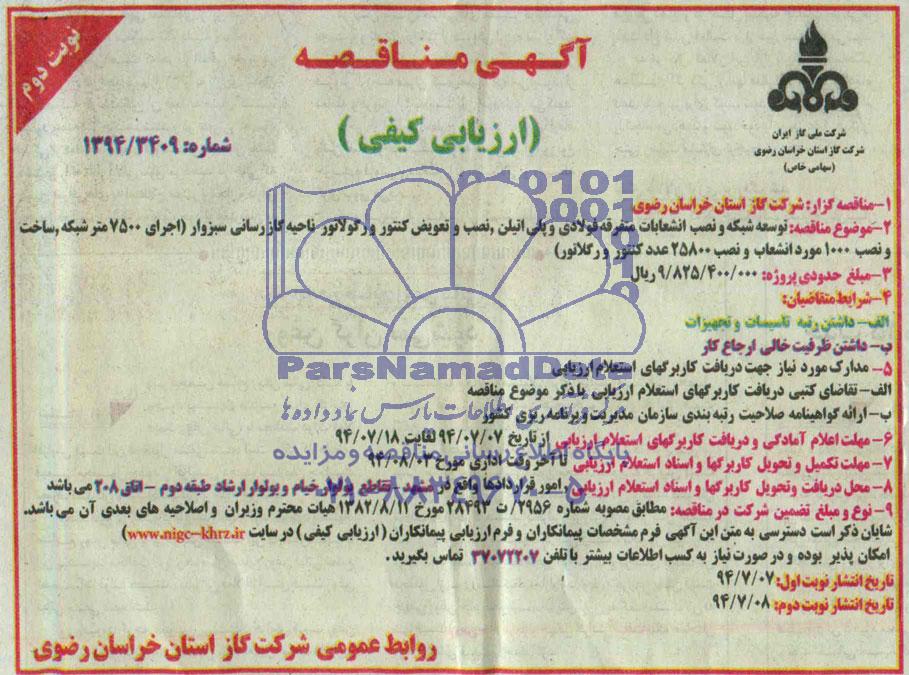 نوبت دوم
آگهی مناقصه
(ارزیابی کیفی)
شماره: ۱۳۹۴/۳۴۰۹
شرکت ملی گاز ایران
شرکت گاز استان خراسان رضوی
(سهامی خاص)
۱-مناقصه گزار: شرکت گاز استان خراسان رضوی
۲-موضوع مناقصه: توسعه شبکه و نصب انشعابات متفرقه فولادی و پلی اتیلن ,نصب و تعویض کنتور و رگولاتور ناحیه گازرسانی سبزوار (اجرای ۷۵۰۰ متر شبکه ,ساخت
و نصب ۱۰۰۰ مورد انشعاب و نصب ۲۵۸۰۰ عدد کنتور و رگلاتور)
۳-مبلغ حدودی پروژه: ۹/۸۲۵/۴۰۰/۰۰۰ ریال
۴-شرایط متقاضیان:
الف- داشتن رتبه تاسیسات و تجهیزات
ب- داشتن ظرفیت خالی ارجاع کار
۵- مدارک مورد نیاز جهت دریافت کاربرگهای استعلام ارزیابی
الف- تقاضای کتبی دریافت کاربرگهای استعلام ارزیابی با ذکر موضوع مناقصه
ب- ارائه گواهینامه صلاحیت رتبه بندی سازمان مدیریت و برنامه ریزی کشور
۶- مهلت اعلام آمادگی و دریافت کاربرگهای استعلام ارزیابی از تاریخ ۹۴/۰۷/۰۷ لغایت ۹۴/۰۷/۱۸
۷- مهلت تکمیل و تحویل کاربرگها و اسناد استعلام ارزیابی تا آخر وقت اداری مورخ ۹۴/۰۸/۰۳
۸- محل دریافت وتحویل کاربرگها و اسناد استعلام ارزیابی: امور قراردادها واقع در مشهد - تقاطع بولوار خیام و بولوار ارشاد طبقه دوم - اتاق ۲۰۸ می باشد
۹- نوع و مبلغ تضمین شرکت در مناقصه: مطابق مصوبه شماره ۲۹۵۶/ت ۲۸۴۹۳ مورخ ۱۳۸۲/۸/۱۱ هیات محترم وزیران و اصلاحیه های بعدی آن می باشد.
شایان ذکر است دسترسی به متن این آگهی فرم مشخصات پیمانکاران و فرم ارزیابی پیمانکاران (ارزیابی کیفی) در سایت (www.nigc-khrz.ir
امکان پذیر بوده و در صورت نیاز به کسب اطلاعات بیشتر با تلفن ۳۷۰۷۲۲۰۷ تماس بگیرید.
تاریخ انتشار نوبت اول: ۹۴/۷/۰۷
تاریخ انتشار نوبت دوم: ۹۴/۷/۰۸
روابط عمومی شرکت گاز استان خراسان رضوی
ParsNamadData
پایگاه اطلاع رسانی مناقصه و مزایده